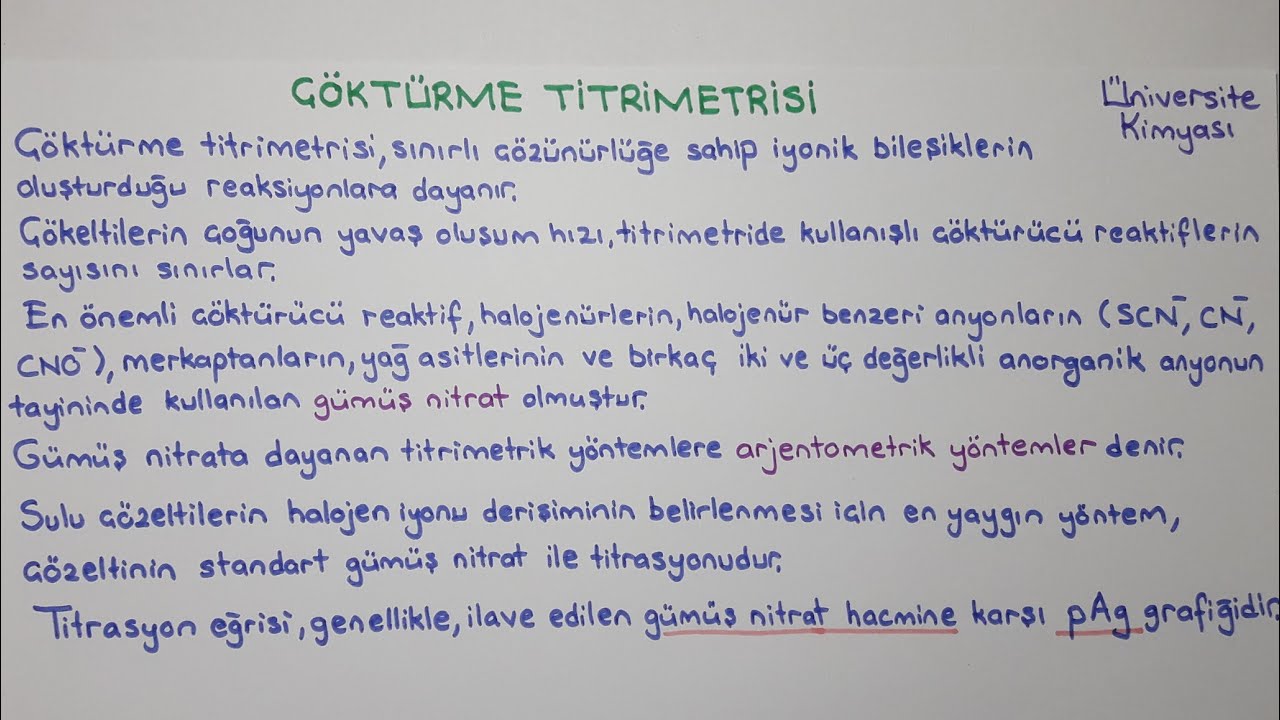 ÇÖKTÜRME TİTRİMETRİSİ
Üniversite
Kimyası
Çöktürme titrimetrisi, sınırlı çözünürlüğe sahip iyonik bileşiklerin
oluşturduğu reaksiyonlara dayanır.
Çökeltilerin çoğunun yavaş oluşum hızı, titrimetride kullanışlı çöktürücü reaktiflerin
sayısını sınırlar.
En önemli çöktürücü reaktif, halojenürlerin, halojenür benzeri anyonların (SCN⁻, CN⁻,
CNO⁻), merkaptanların, yağ asitlerinin ve birkaç iki ve üç değerlikli anorganik anyonun
tayininde kullanılan gümüş nitrat olmuştur.
Gümüş nitrata dayanan titrimetrik yöntemlere arjentometrik yöntemler denir.
Sulu çözeltilerin halojen iyonu derişiminin belirlenmesi için en yaygın yöntem,
çözeltinin standart gümüş nitrat ile titrasyonudur.
Titrasyon eğrisi, genellikle, ilave edilen gümüş nitrat hacmine karşı pAg grafiğidir.